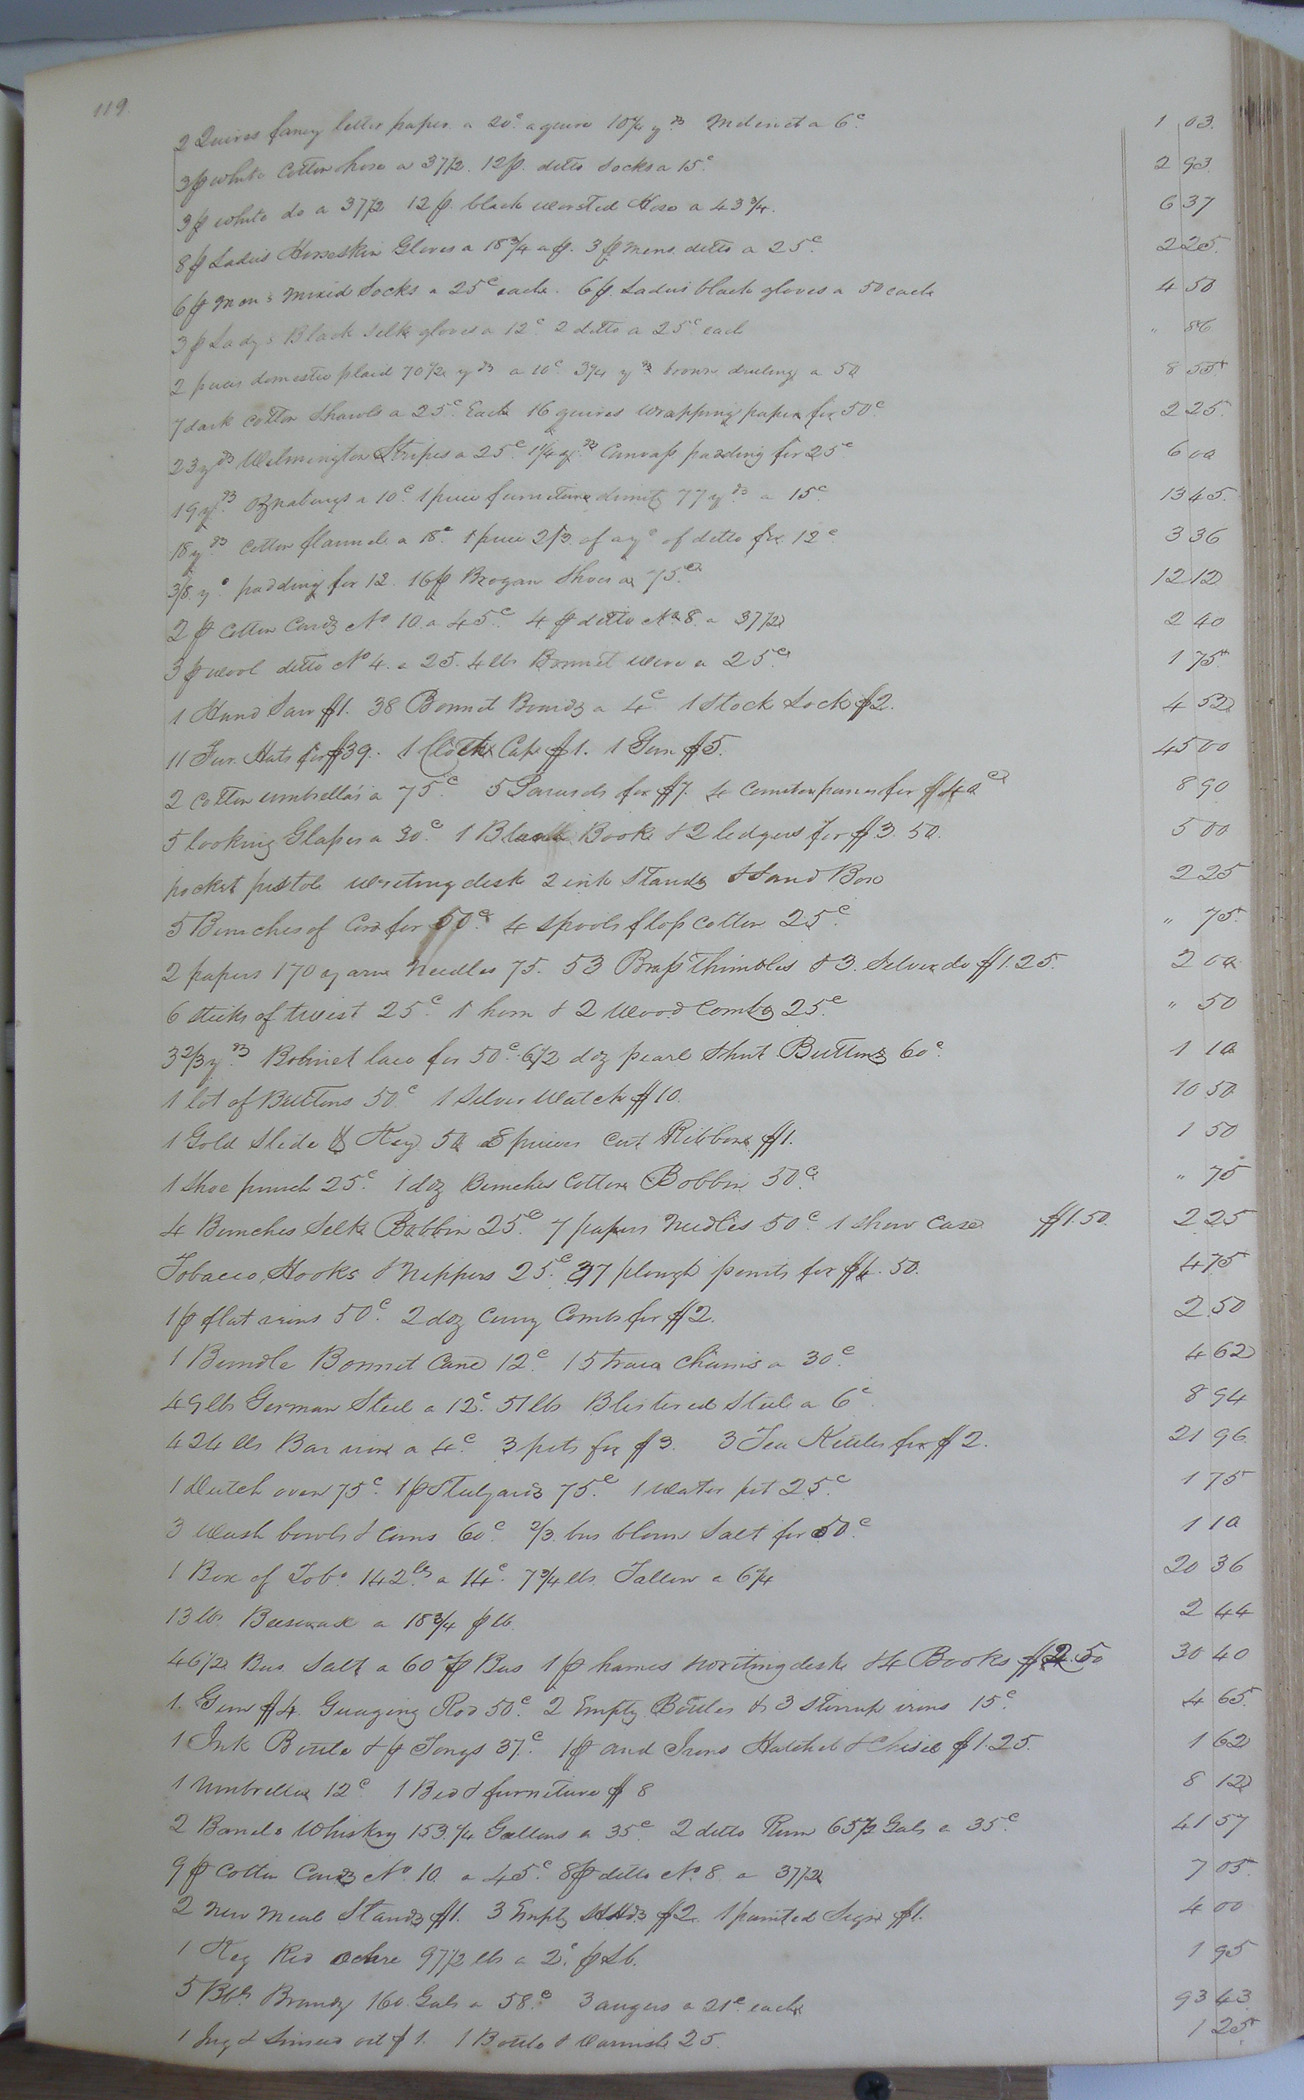 119.
2 Quires fancy letter paper a 20c a quire 10½ yds a 6c 1 03.
3 p white Cotton hose a 37½. 12 p. ditto Socks a 15c 2 93
3 p white do a 37½ 12 p. black worsted Hose a 43¾. 6 37
8 p Ladies Horseskin Gloves a 18¾ a p. 3 p mens ditto a 25c 2 25.
6 p Men's mixed Socks a 25c each. 6 p. Ladies black gloves a 50 each 4 50
3 p Lady's Black Silk gloves a 12c 2 ditto a 25c each " 86
2 pieces domestic plaid 70½ yds a 10c 3¾ yds brown drilling a 50 8 55
7 dark cotton Shawls a 25c Each 16 quires wrapping paper for 50c 2 25.
23 yds Wilmington Stripes a 25c 1¼ yds Canvass padding for 25c 6 00
19 yds Oznaburgs a 10c 1 piece furniture dimity 77 yds a 15c 13 45.
18 yds Cotton flannel a 18c 1 piece 2/3 of a yd of ditto for 12c 3 36
3/8 yd padding for 12. 16 p Brogan Shoes a 75cs 12 12
2 p Cotton Cards No 10 a 45c 4 p ditto No 8 a 37½ 2 40
3 p wool ditto No 4. a 25. 4 lbs Bonnet wire a 25cs 1 75
1 Hand Saw $1. 38 Bonnet Boards a 4c 1 Stock Lock $2. 4 52
11 Fur Hats for $39. 1 Cloth Cap $1. 1 Gun $5. 45 00
2 Cotton umbrella's a 75c 5 Parasols for $7. 4 for 40cs 8 90
5 looking Glasses a 30c 1 Blank Book & 2 ledgers for $3.50. 5 00
pocket pistol writing desk 2 ink Stands & Sand Box 2 25
5 Bunches of Cord for 50cs 4 Spools floss cotton 25c " 75.
2 papers 170 needles 75. 53 Brass Thimbles & 3. Silver do $1.25. 2 00
6 sticks of twist 25c 1 horn & 2 Wood Combs 25c " 50
3 2/3 yds Bobinet lace for 50c 6½ doz pearl Shirt Buttons 60c 1 10
1 lot of Buttons 50c 1 Silver Watch $10. 10 50
1 Gold Slide & Key 50 8 pieces Cut Ribbons $1. 1 50
1 Shoe punch 25c 1 doz Bunches Cotton Bobbin 50cs " 75
4 Bunches Silk Bobbin 25cs 7 papers Needles 50c 1 Show Case $1.50. 2 25
Tobacco, Hooks & Nippers 25c 37 plough points for $4.50. 4 75
1 p flat irons 50c 2 doz Curry Combs for $2. 2 50
1 Bundle Bonnet Cane 12c 15 trace Chains a 30c 4 62
49 lbs German Steel a 12c 51 lbs Blistered Steel a 6c 8 94
424 lbs Bar iron a 4c 3 pots for $3. 3 Tea Kettles for $2. 21 96
1 Dutch oven 75c 1 p Stelyards 75c 1 Water pot 25c 1 75
3 Wash bowls & 60c 2/3 bus blown Salt for 50c 1 10
1 Box of Tobo 142 lbs a 14c 7¾ lbs Tallow a 6¼ 20 36
13 lbs Beeswax a 18¾ p lb 2 44
46½ Bus Salt a 60 p Bus 1 p hames writing desk & 4 Books $2.50 30 40
1. Gun $4 Guaging Rod 50c 2 Empty Bottles & 3 Stirrup irons 15c 4 65
1 Ink Bottle & p Tongs 37c 1 p and Irons Hatchet & Chisel $1.25. 1 62
1 Umbrella 12c 1 Bed & furniture $8 8 12
2 Barrels Whiskey 153¼ Gallons a 35c 2 ditto Rum 65½ Gals a 35c 41 57
9 p Cotton Cards No 10 a 45c 8 p ditto No 8 a 37½ 7 05
2 New Meal Stands $1. 3 Empty HHds $2. 1 painted Sign $1. 4 00
1 Keg Red Ochre 97½ lbs a 2c p Lb. 1 95
5 Bbls Brandy 160 Gals a 58c 3 augers a 21c each 93 43
1 Jug & Linseed oil $1. 1 Bottle & Varnish 25 1 25